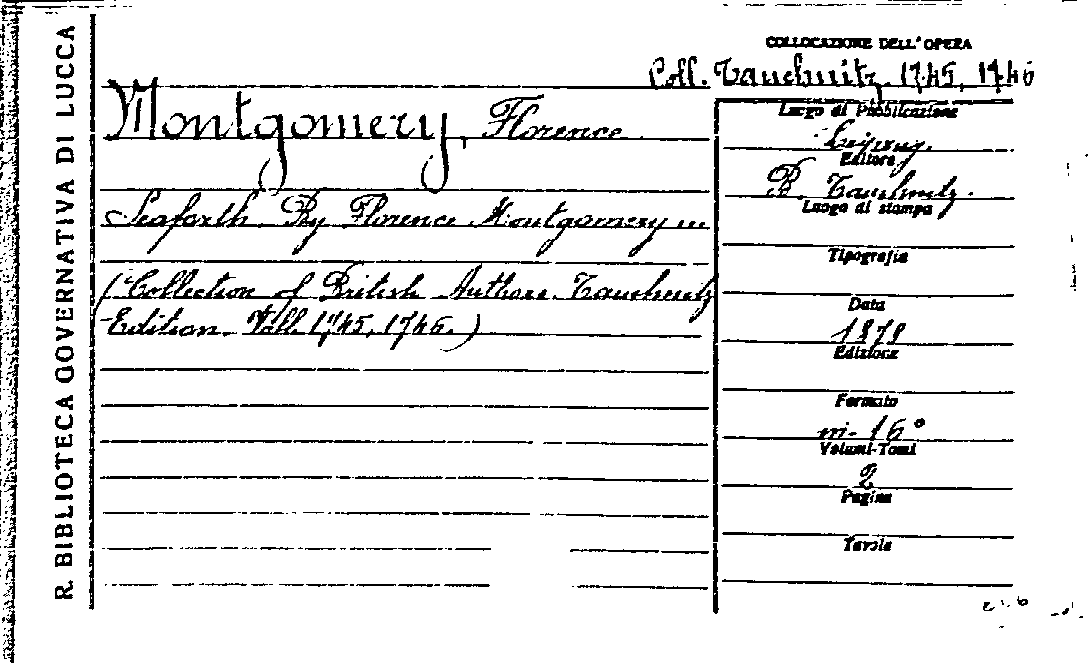 R. BIBLIOTECA GOVERNATIVA DI LUCCA
COLLOCAZIONE DELL'OPERA
Coll. Tauchnitz, 1745, 1746
Montgomery, Florence
Seaforth. By Florence Montgomery ...
(Collection of British Authors. Tauchnitz
Edition. Voll. 1745, 1746.)
Luogo di Pubblicazione
Leipzig.
Editore
B. Tauchnitz.
Luogo di stampa
Tipografia
Data
1878
Edizione
Formato
in-16°
Volumi-Tomi
2
Pagine
Tavole